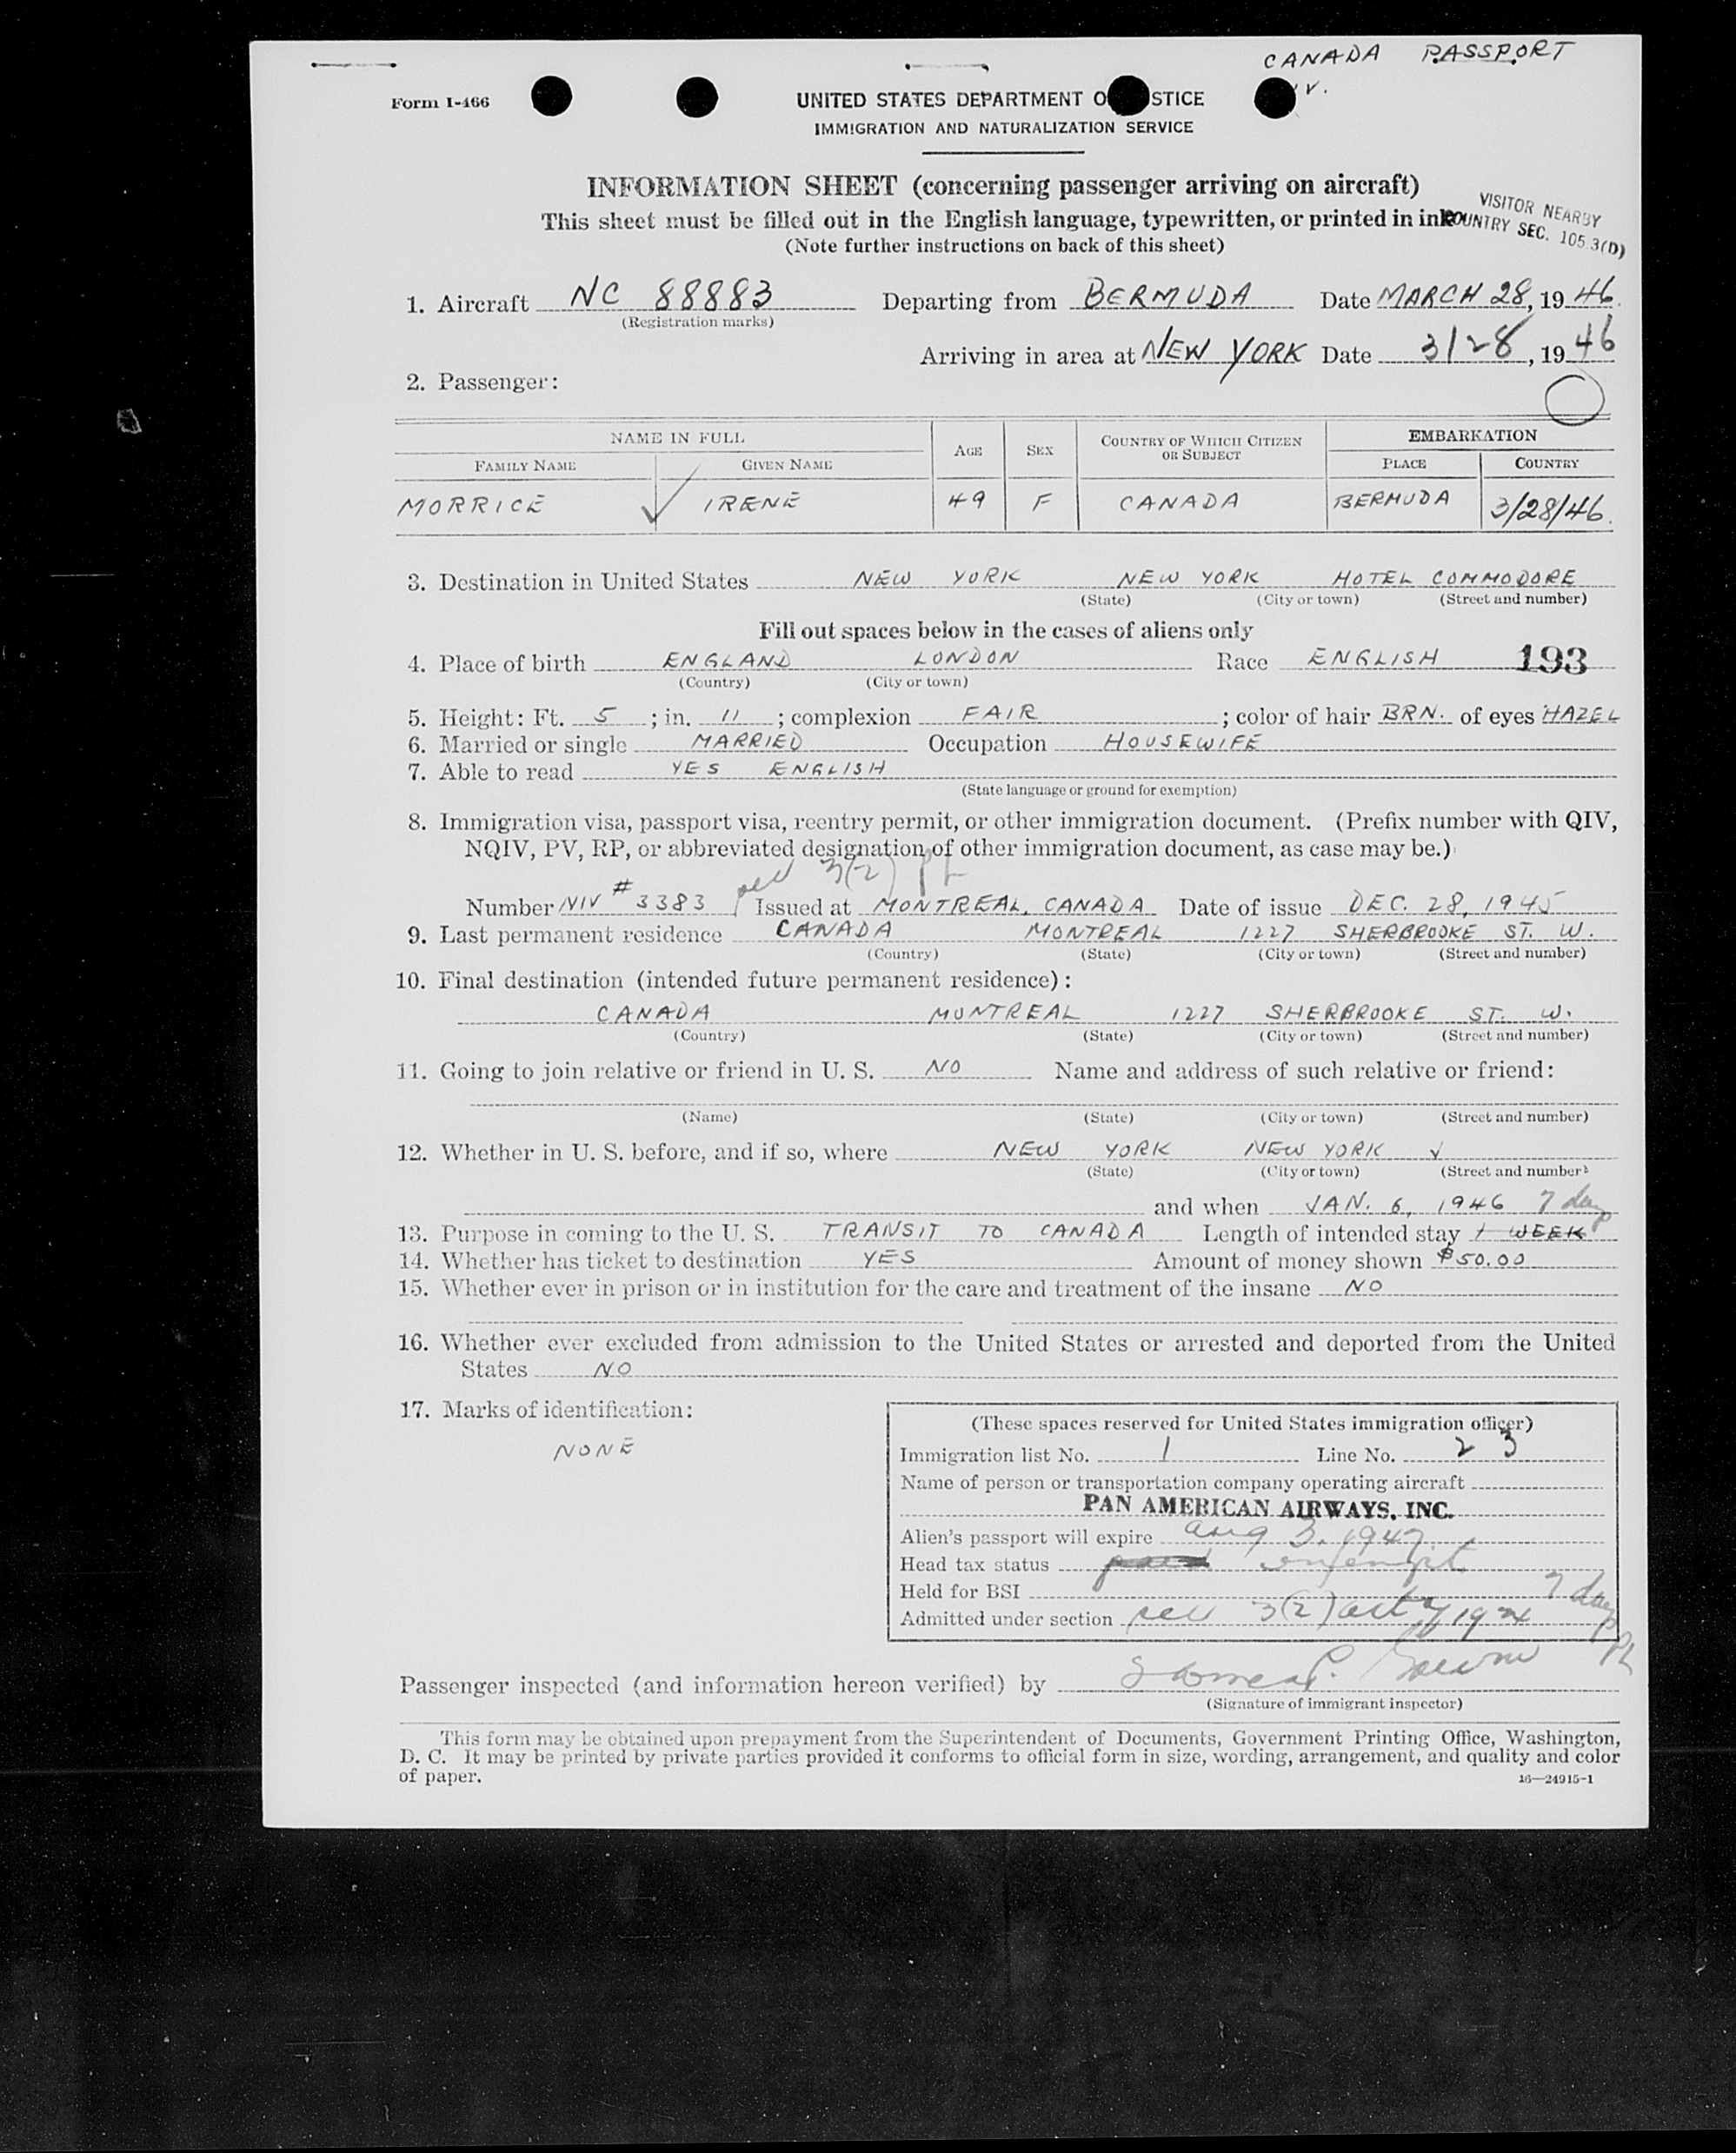 CANADA PASSPORT
Form I-466
UNITED STATES DEPARTMENT O STICE
IV.
IMMIGRATION AND NATURALIZATION SERVICE
INFORMATION SHEET (concerning passenger arriving on aircraft)
This sheet must be filled out in the English language, typewritten, or printed in ink
VISITOR NEARBY
COUNTRY SEC. 105.3(D)
(Note further instructions on back of this sheet)
1. Aircraft NC 88883 Departing from BERMUDA Date MARCH 28, 1946.
(Registration marks)
Arriving in area at NEW YORK Date 3/28, 1946
2. Passenger:
NAME IN FULL AGE SEX COUNTRY OF WHICH CITIZEN OR SUBJECT EMBARKATION
FAMILY NAME GIVEN NAME PLACE COUNTRY
MORRICE ✓ IRENE 49 F CANADA BERMUDA 3/28/46.
3. Destination in United States NEW YORK NEW YORK HOTEL COMMODORE
(State) (City or town) (Street and number)
Fill out spaces below in the cases of aliens only
4. Place of birth ENGLAND LONDON Race ENGLISH 193
(Country) (City or town)
5. Height: Ft. 5 ; in. 11 ; complexion FAIR ; color of hair BRN. of eyes HAZEL
6. Married or single MARRIED Occupation HOUSEWIFE
7. Able to read YES ENGLISH
(State language or ground for exemption)
8. Immigration visa, passport visa, reentry permit, or other immigration document. (Prefix number with QIV,
NQIV, PV, RP, or abbreviated designation of other immigration document, as case may be.)
3(2)
Number NIV # 3383 Issued at MONTREAL, CANADA Date of issue DEC. 28, 1945
9. Last permanent residence CANADA MONTREAL 1227 SHERBROOKE ST. W.
(Country) (State) (City or town) (Street and number)
10. Final destination (intended future permanent residence):
CANADA MONTREAL 1227 SHERBROOKE ST. W.
(Country) (State) (City or town) (Street and number)
11. Going to join relative or friend in U. S. NO Name and address of such relative or friend:
(Name) (State) (City or town) (Street and number)
12. Whether in U. S. before, and if so, where NEW YORK NEW YORK ✓
(State) (City or town) (Street and number)
and when JAN. 6, 1946 7 days
13. Purpose in coming to the U. S. TRANSIT TO CANADA Length of intended stay 1 WEEK
14. Whether has ticket to destination YES Amount of money shown $50.00
15. Whether ever in prison or in institution for the care and treatment of the insane NO
16. Whether ever excluded from admission to the United States or arrested and deported from the United
States NO
17. Marks of identification:
NONE
(These spaces reserved for United States immigration officer)
Immigration list No. 1 Line No. 23
Name of person or transportation company operating aircraft
PAN AMERICAN AIRWAYS, INC.
Alien's passport will expire Aug 3, 1947
Head tax status exempt
Held for BSI 7 days
Admitted under section sec 3(2) act of 1924
Passenger inspected (and information hereon verified) by
(Signature of immigrant inspector)
This form may be obtained upon prepayment from the Superintendent of Documents, Government Printing Office, Washington,
D. C. It may be printed by private parties provided it conforms to official form in size, wording, arrangement, and quality and color
of paper.
16—24915-1